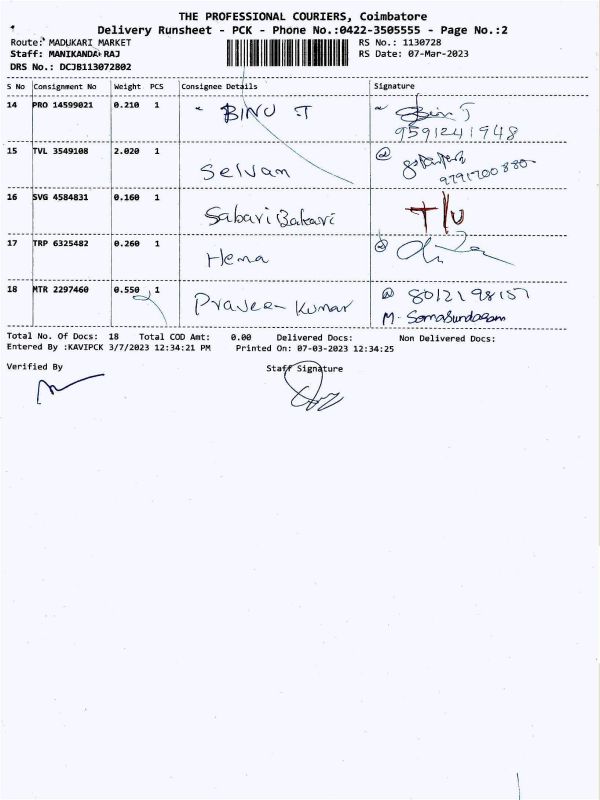 THE PROFESSIONAL COURIERS, Coimbatore
Delivery Runsheet - PCK - Phone No.:0422-3505555 - Page No.:2
Route: MADUKARI MARKET RS No.: 1130728
Staff: MANIKANDA RAJ RS Date: 07-Mar-2023
DRS No.: DCJB113072802
S No Consignment No Weight PCS Consignee Details Signature
14 PRO 14599021 0.210 1 BINU T
9591241948
15 TVL 3549108 2.020 1 Selvan
9791700880
16 SVG 4584831 0.160 1 Sabari T/U
17 TRP 6325482 0.260 1 Hema
18 MTR 2297460 0.550 1 Praveen Kumar 8012198157
M. Somasundaram
Total No. Of Docs: 18 Total COD Amt: 0.00 Delivered Docs: Non Delivered Docs:
Entered By :KAVIPCK 3/7/2023 12:34:21 PM Printed On: 07-03-2023 12:34:25
Verified By Staff Signature